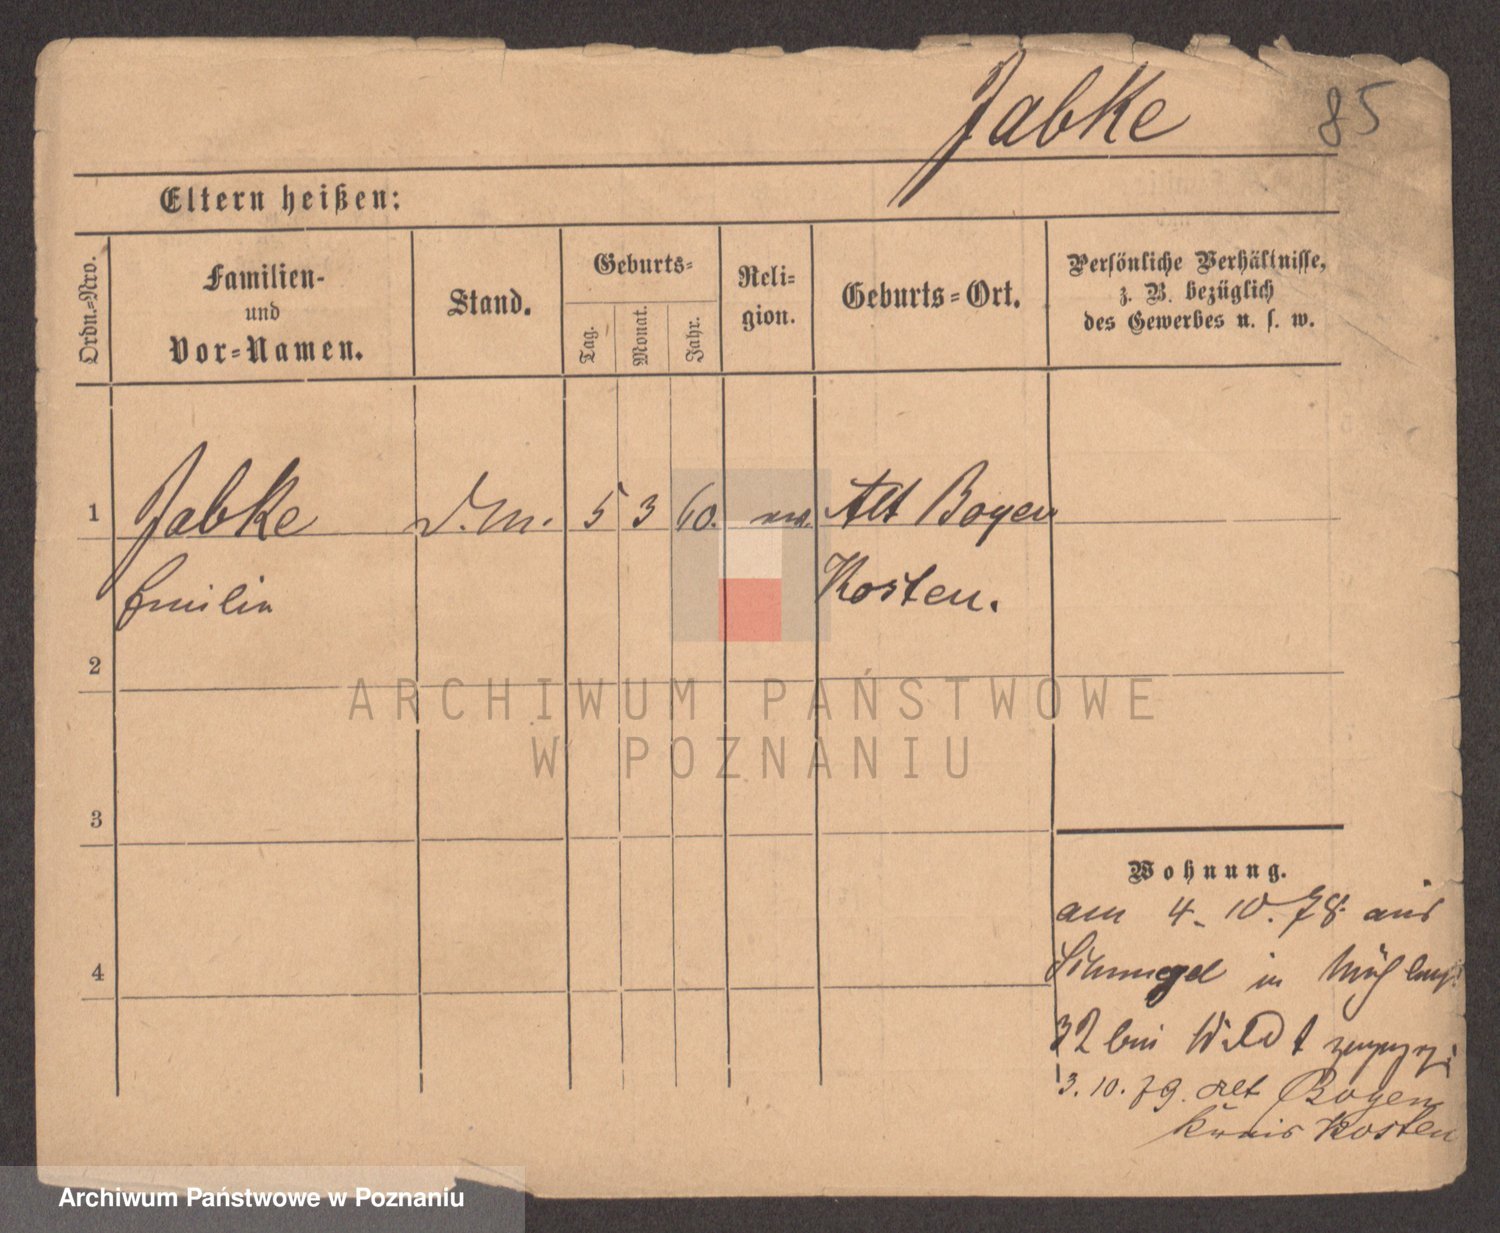 Jabke
85
Eltern heißen:
Ordn.=Nro.
Familien-
und
Vor=Namen.
Stand.
Geburts=
Tag.
Monat.
Jahr.
Reli=
gion.
Geburts=Ort.
Persönliche Verhältnisse,
z. B. bezüglich
des Gewerbes u. s. w.
1 Jabke D. M. 5 3 60. Alt Boyen
Emilie Kosten.
2
ARCHIWUM PAŃSTWOWE
W POZNANIU
3
Wohnung.
am 4. 10. 78. aus
4
Schmiegel in
32 bei
3. 10. 79. Alt Boyen
Kreis Kosten
Archiwum Państwowe w Poznaniu